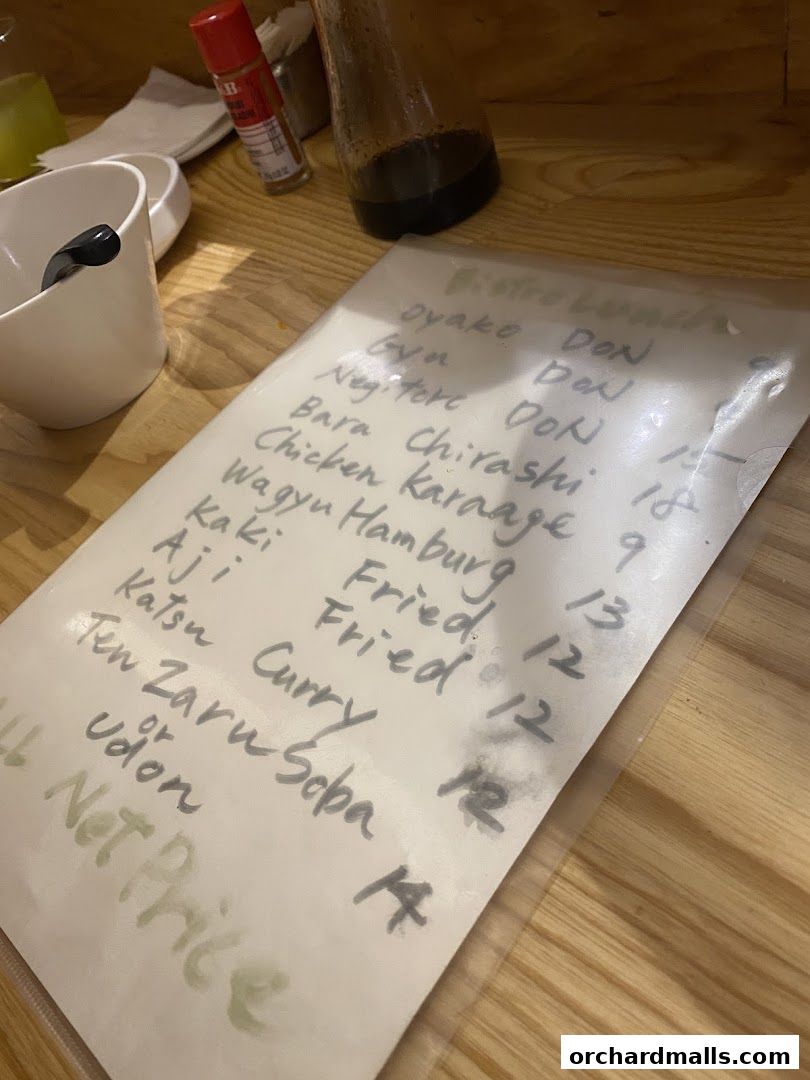 Bistro Lunch
Oyako DON 9
Gyu DON 9
Negitoro DON 15
Bara Chirashi 18
Chicken Karaage 9
Wagyu Hamburg 13
Kaki Fried 12
Aji Fried 12
Katsu Curry 12
Ten Zaru Soba 14
or
Udon
ALL Net Price
orchardmalls.com